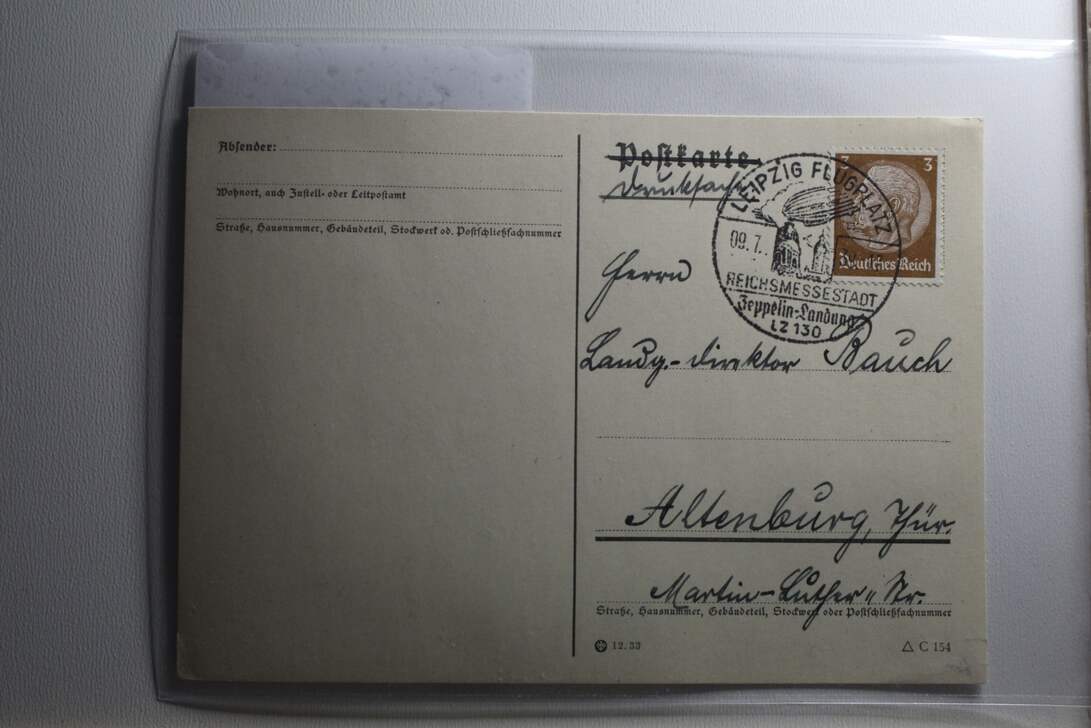 Absender:
Wohnort, auch Zustell- oder Leitpostamt
Straße, Hausnummer, Gebäudeteil, Stockwerk od. Postschließfachnummer
Postkarte
Drucksache
3 3
Deutsches Reich
LEIPZIG FLUGPLATZ
09.7.
REICHSMESSESTADT
Zeppelin-Landung
LZ 130
Herrn
Landg.-Direktor Bauch
Altenburg, Thür.
Martin-Luther-Str.
Straße, Hausnummer, Gebäudeteil, Stockwerk oder Postschließfachnummer
12.33
C 154